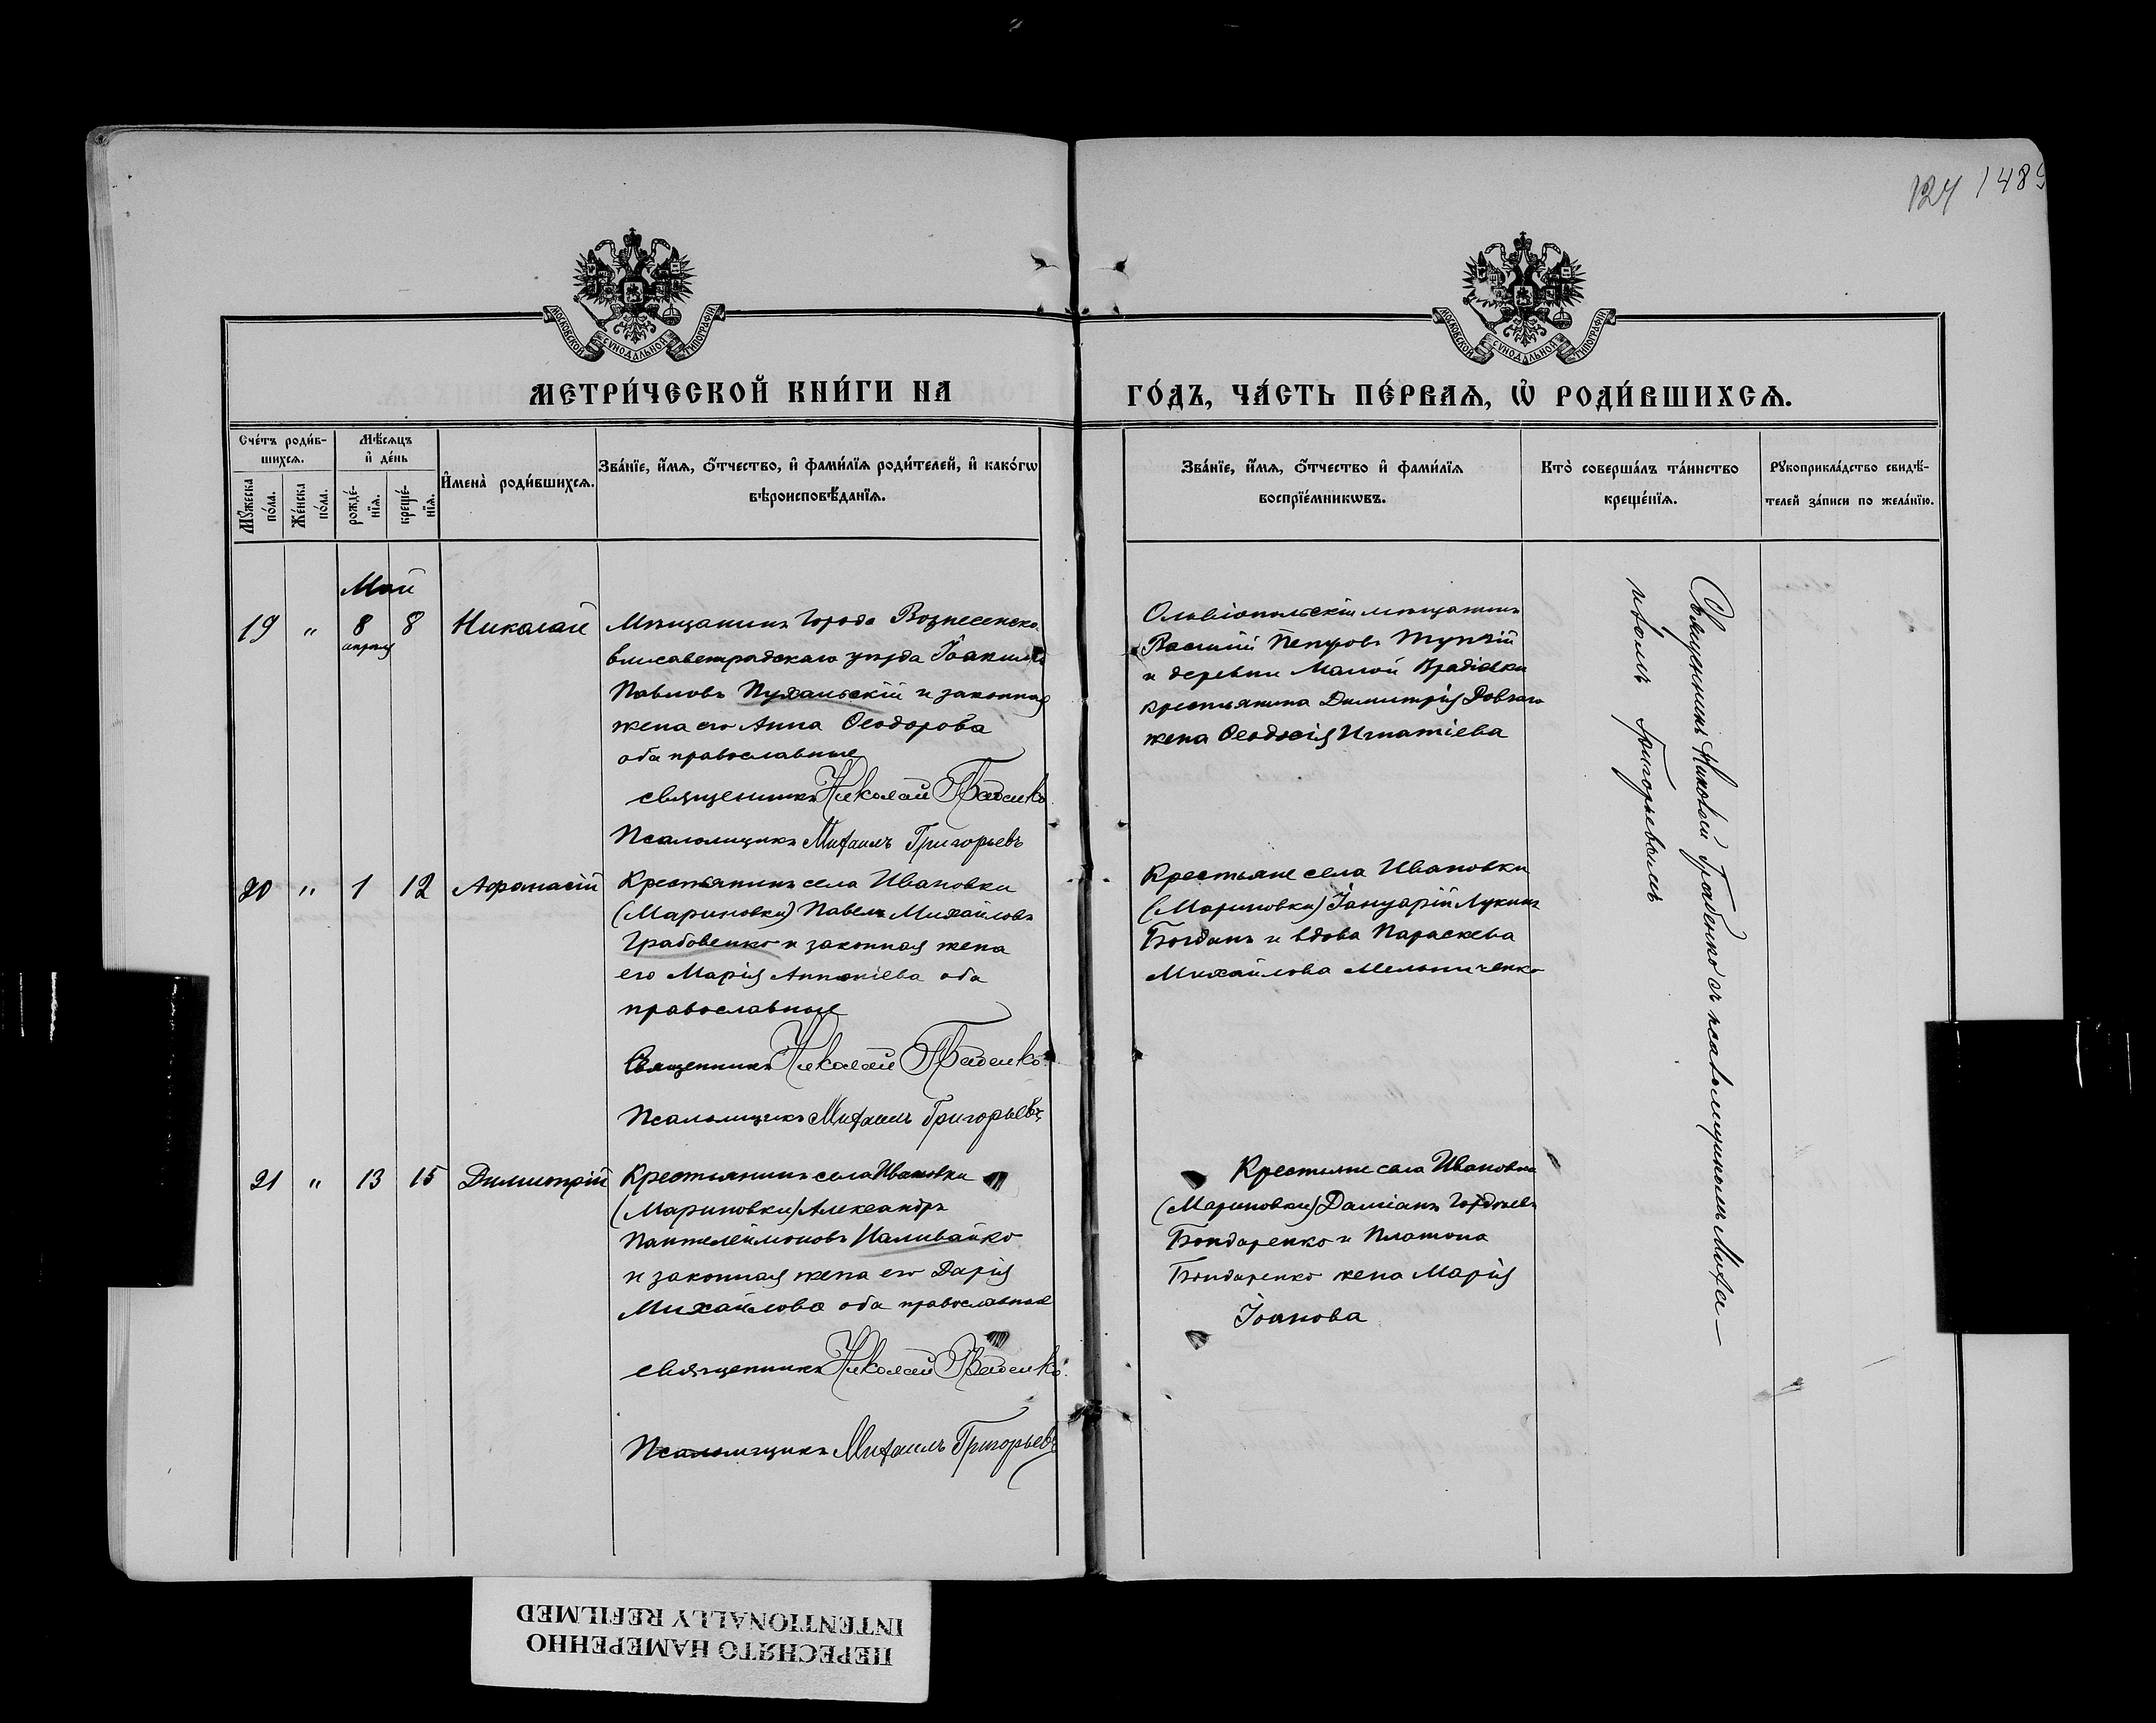 124 1485
МОСКОВСКОЙ СУНОДАЛЬНОЙ ТИПОГРАФІИ
МОСКОВСКОЙ СУНОДАЛЬНОЙ ТИПОГРАФІИ
МЕТРИ́ЧЕСКОЙ КНИ́ГИ НА
ГО́ДЪ, ЧА́СТЬ ПЕ́РВАѦ, Ѽ РОДИ́ВШИХСѦ.
Сче́тъ роди́в-
шихсѧ.
Мꙋ́жеска
по́ла.
Же́нска
по́ла.
Мѣ́сѧцъ
и҆ де́нь
рожде́-
нїѧ.
креще́-
нїѧ.
И҆мена̀ роди́вшихсѧ.
Зва́нїе, и҆́мѧ, ѻ҆́тчество, и҆ фами́лїѧ роди́телей, и҆ како́гѡ
вѣроисповѣ́данїѧ.
Зва́нїе, и҆́мѧ, ѻ҆́тчество и҆ фами́лїѧ
воспрїе́мникѡвъ.
Кто̀ соверша́лъ та́инство
креще́нїѧ.
Рꙋкоприкла́дство свидѣ́-
телей за́писи по жела́нїю.
Май
19 " 8 8 Николай
апрѣля
Мѣщанинъ города Вознесенска
Елисаветградскаго уѣзда Іоакимъ
Павловъ Пухальскій и законная
жена его Анна Ѳеодорова
оба православные
священникъ Николай Грабенко
Псаломщикъ Михаилъ Григорьевъ
Ольвіопольскій мѣщанинъ
Василій Петровъ Тупчій
и деревни Малой Врадіевки
крестьянина Димитрія
жена Ѳеодосія Игнатіева
20 " 1 12 Афанасій
Крестьянинъ села Ивановки
(Мариновки) Павелъ Михайловъ
Грабовенко и законная жена
его Марія Антоніева оба
православные
Священникъ Николай Грабенко
Псаломщикъ Михаилъ Григорьевъ
Крестьяне села Ивановки
(Мариновки) Іануарій Лукинъ
Богданъ и вдова Параскева
Михайлова Мельниченко
21 " 13 15 Димитрій
Крестьянинъ села Ивановки
(Мариновки) Александръ
Пантелеймоновъ Наливайко
и законная жена его Дарія
Михайлова оба православные
священникъ Николай Грабенко
Псаломщикъ Михаилъ Григорьевъ
Крестьяне села Ивановки
(Мариновки) Даміанъ Гордѣевъ
Бондаренко и Платона
Бондаренко жена Марія
Іоанова
Священникъ Николай Грабенко съ псаломщикомъ Миха-
иломъ Григорьевымъ
ПЕРЕСНЯТО НАМЕРЕННО
INTENTIONALLY REFILMED